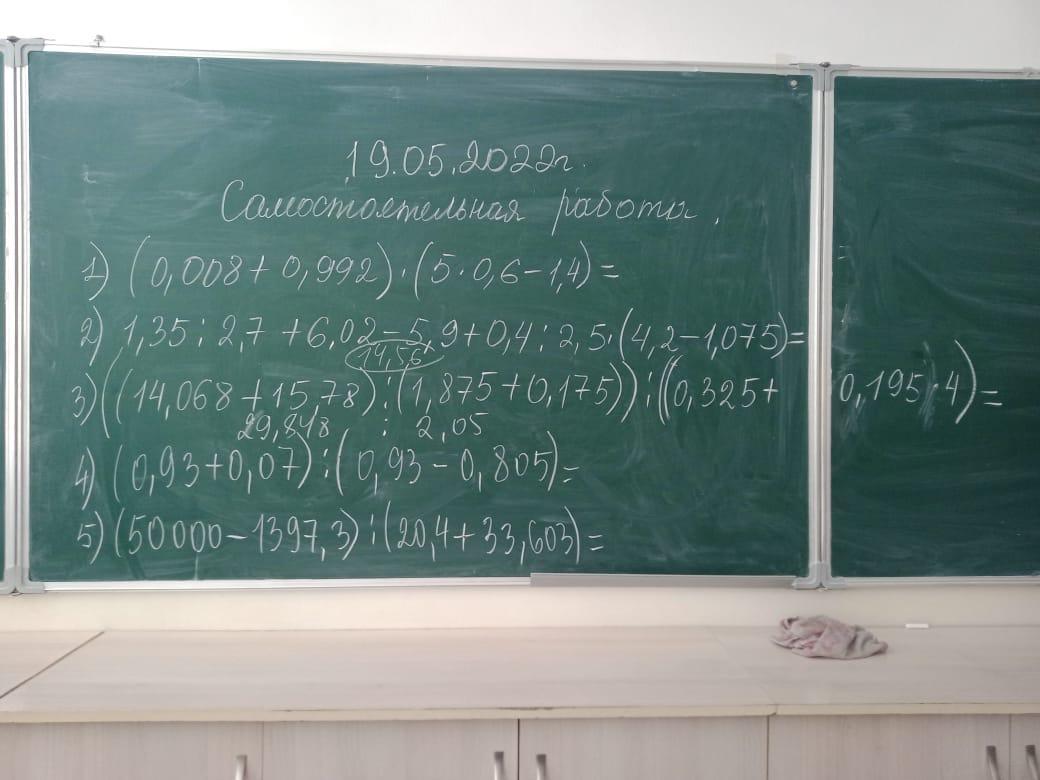 19.05.2022г.
Самостоятельная работа.
1) (0,008+0,992)·(5·0,6-1,4)=
2) 1,35:2,7+6,02-5,9+0,4:2,5·(4,2-1,075)=
14,56
3) ((14,068+15,78):(1,875+0,175)):((0,325+0,195·4)=
29,848 : 2,05
4) (0,93+0,07):(0,93-0,805)=
5) (50000-1397,3):(20,4+33,603)=